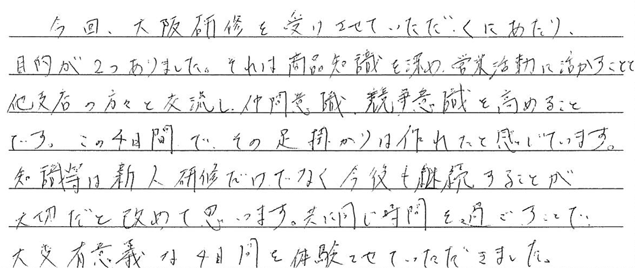 今回、大阪研修を受けさせていただくにあたり、
目的が2つありました。それは商品知識を深め、営業活動に活かすことと
他支店の方々と交流し、仲間意識、競争意識を高めること
です。この4日間で、その足掛かりは作れたと感じています。
知識等は新人研修だけでなく今後も継続することが
大切だと改めて思います。共に同じ時間を過ごすことで、
大変有意義な4日間を体験させていただきました。